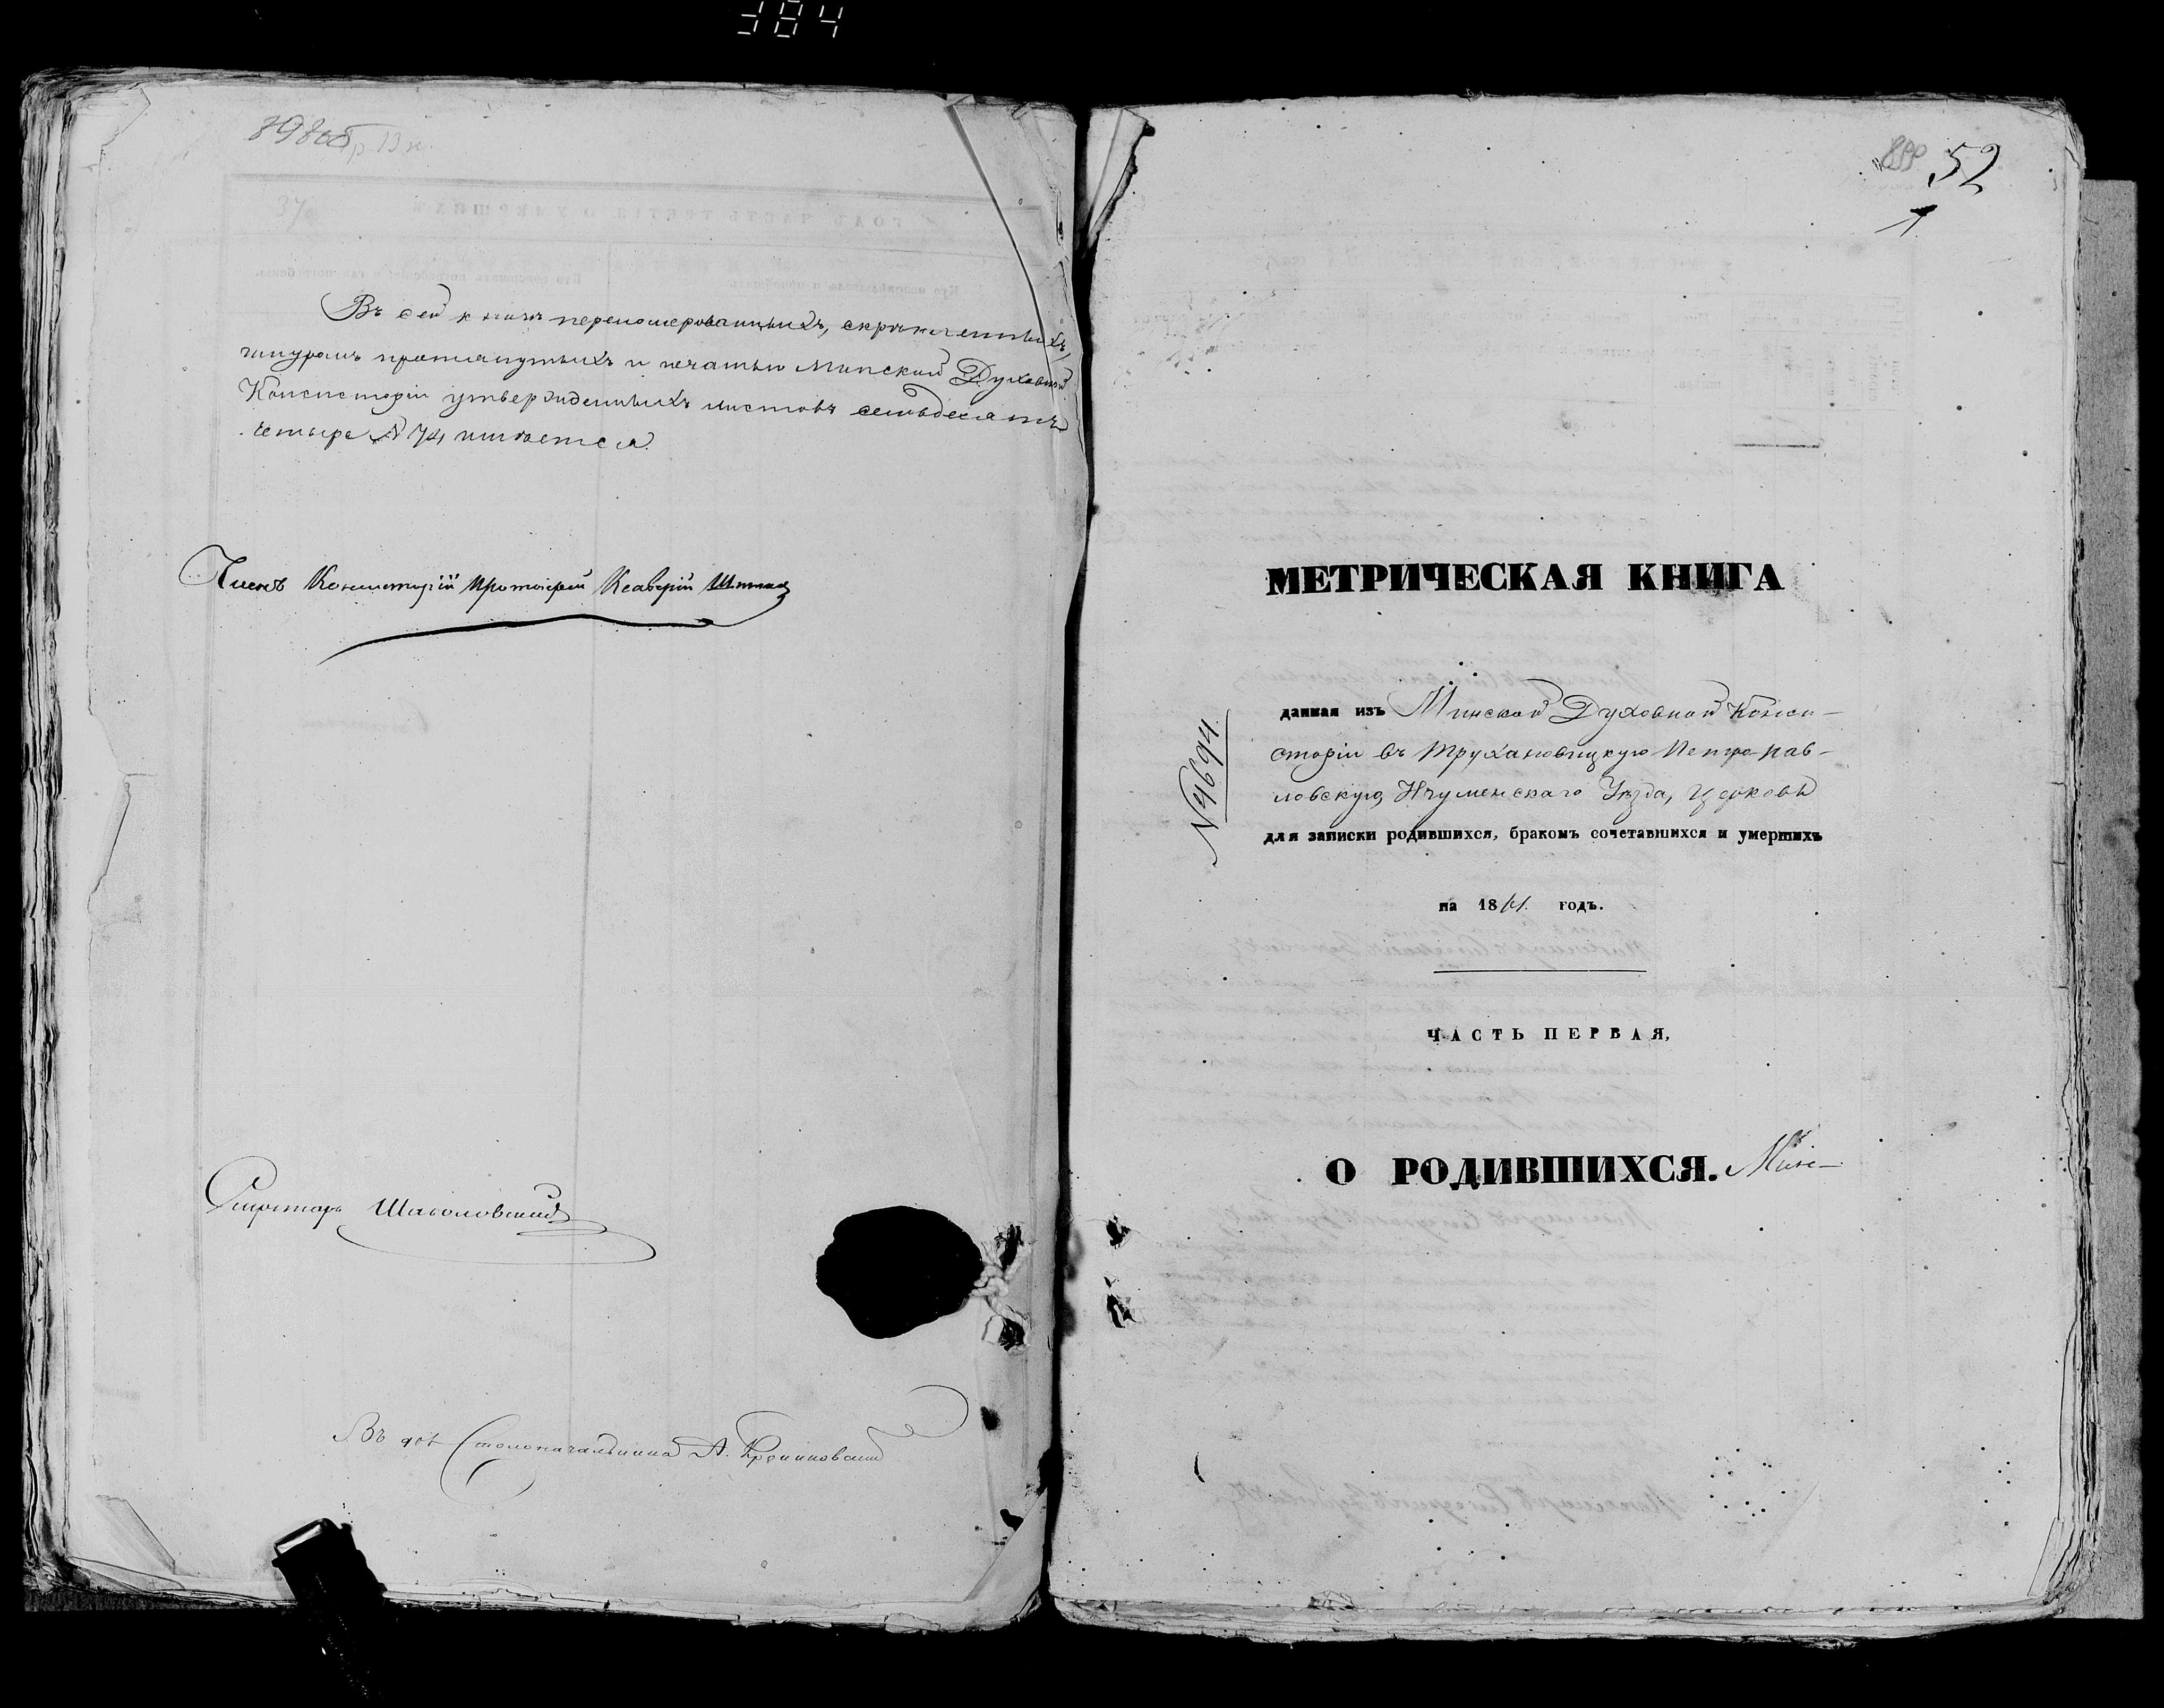 384
898 об
Въ сей книгѣ переномерованныхъ, скрѣпленныхъ,
шнуромъ протянутыхъ и печатью Минской Духовной
Консисторіи утвержденныхъ листовъ семьдесятъ
четыре № 74 имѣется.
Членъ Консисторіи Протоіерей Ксаверій
Секретарь
Въ дол. Столоначальника А.
899 52
МЕТРИЧЕСКАЯ КНИГА
данная изъ Минской Духовной Конси-
сторіи въ Трухановицкую Петро-Пав-
ловскую, Игуменскаго Уѣзда, Церковь
для записки родившихся, бракомъ сочетавшихся и умершихъ
№ 4694.
на 18 годъ.
ЧАСТЬ ПЕРВАЯ,
О РОДИВШИХСЯ. Мин-